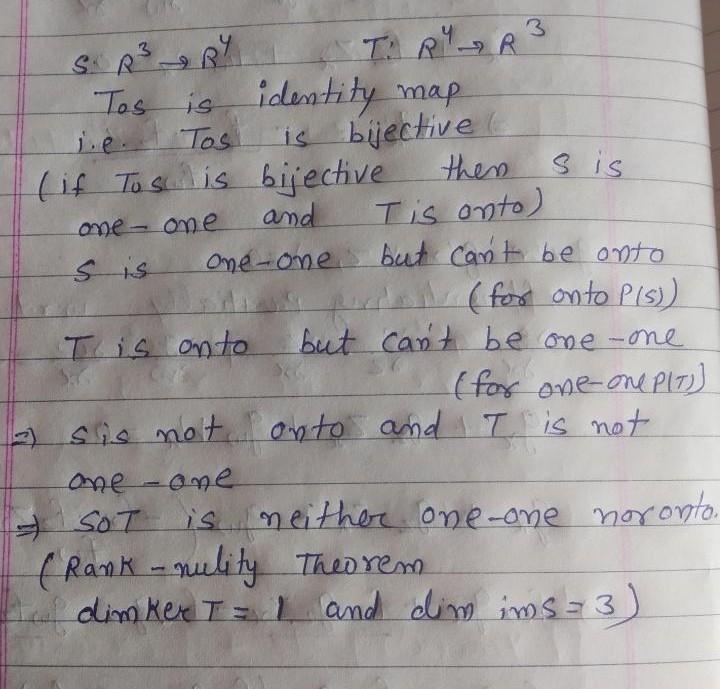 S: R³ → R⁴ T: R⁴ → R³
Tos is identity map
i.e. Tos is bijective
(if Tos is bijective then S is
one-one and T is onto)
S is one-one but can't be onto
(for onto P(S))
T is onto but can't be one-one
(for one-one P(T))
⇒ S is not onto and T is not
one-one
⇒ SoT is neither one-one nor onto.
(Rank-nulity Theorem
dim ker T = 1 and dim im S = 3)